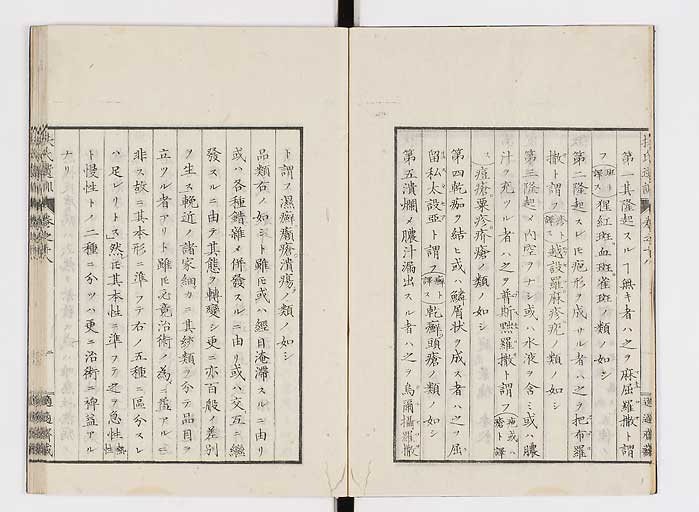 第一其隆起スルヿ無キ者ハ之ヲ麻屈羅撒ト謂
フ斑ト譯ス猩紅斑血斑雀斑ノ類ノ如シ
第二隆起スレ𪜈疱形ヲ成サル者ハ之ヲ把布羅
撒ト謂フ疹ト譯ス越設羅麻疹疣ノ類ノ如シ
第三隆起〆内空ヲナシ或ハ水液ヲ含ミ或ハ膿
汁ヲ充ツル者ハ之ヲ普斯黙羅撒ト謂フ疱或ハ瘡ト譯
ス痘瘡粟疹疥瘡ノ類ノ如シ
第四乾痂ヲ結ヒ或ハ鱗屑状ヲ成ス者ハ之ヲ屈
留私太設亞ト謂フ癬ト譯ス乾癬頭瘡ノ類ノ如シ
第五潰爛〆膿汁漏出スル者ハ之ヲ烏爾攝羅撒
ト謂フ濕癬癘瘡潰瘍ノ類ノ如シ
品類右ノ如シト雖𪜈或ハ經日淹滞スルニ由リ
或ハ各種錯雜〆併發スルニ由リ或ハ交互ニ繼
發スルニ由テ其態ヲ轉變シ更ニ亦百般ノ差別
ヲ生ス輓近ノ諸家細カニ其紛類ヲ分テ品目ヲ
立ツル者アリト雖𪜈元竟治術ノ為ニ益アルニ
非ス故ニ其本形ニ準フテ右ノ五種ニ區分スレ
ハ足レリトス然𪜈其本性ニ準フテ之ヲ急性熱性
ト慢性トノ二種ニ分ツハ更ニ治術ニ裨益アル
ナリ
適適齋藏